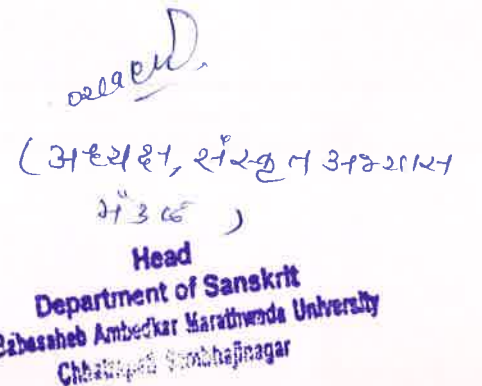 (अध्यक्ष, संस्कृत अभ्यास
मंडळ)
Head
Department of Sanskrit
Babasaheb Ambedkar Marathwada University
Chhatrapati Sambhajinagar